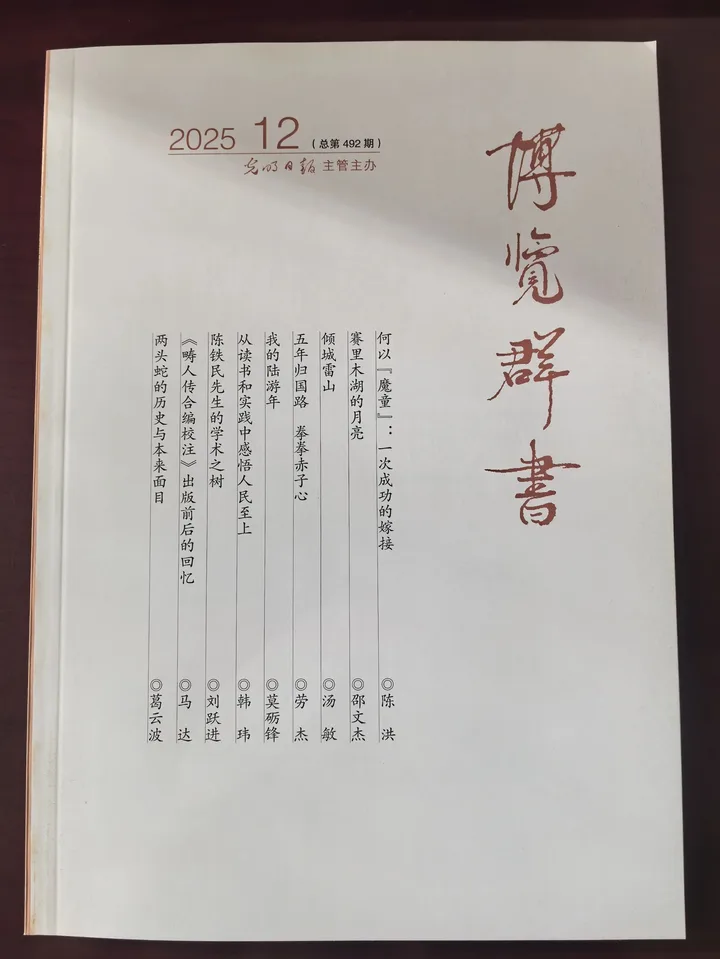 博览群书
2025 12 (总第 492 期)
光明日报 主管主办
何以『魔童』：一次成功的嫁接 ◎陈 洪
赛里木湖的月亮 ◎邵文杰
倾城雷山 ◎汤 敏
五年归国路 拳拳赤子心 ◎劳 杰
我的陆游年 ◎莫砺锋
从读书和实践中感悟人民至上 ◎韩 玮
陈铁民先生的学术之树 ◎刘跃进
《畴人传合编校注》出版前后的回忆 ◎马 达
两头蛇的历史与本来面目 ◎葛云波